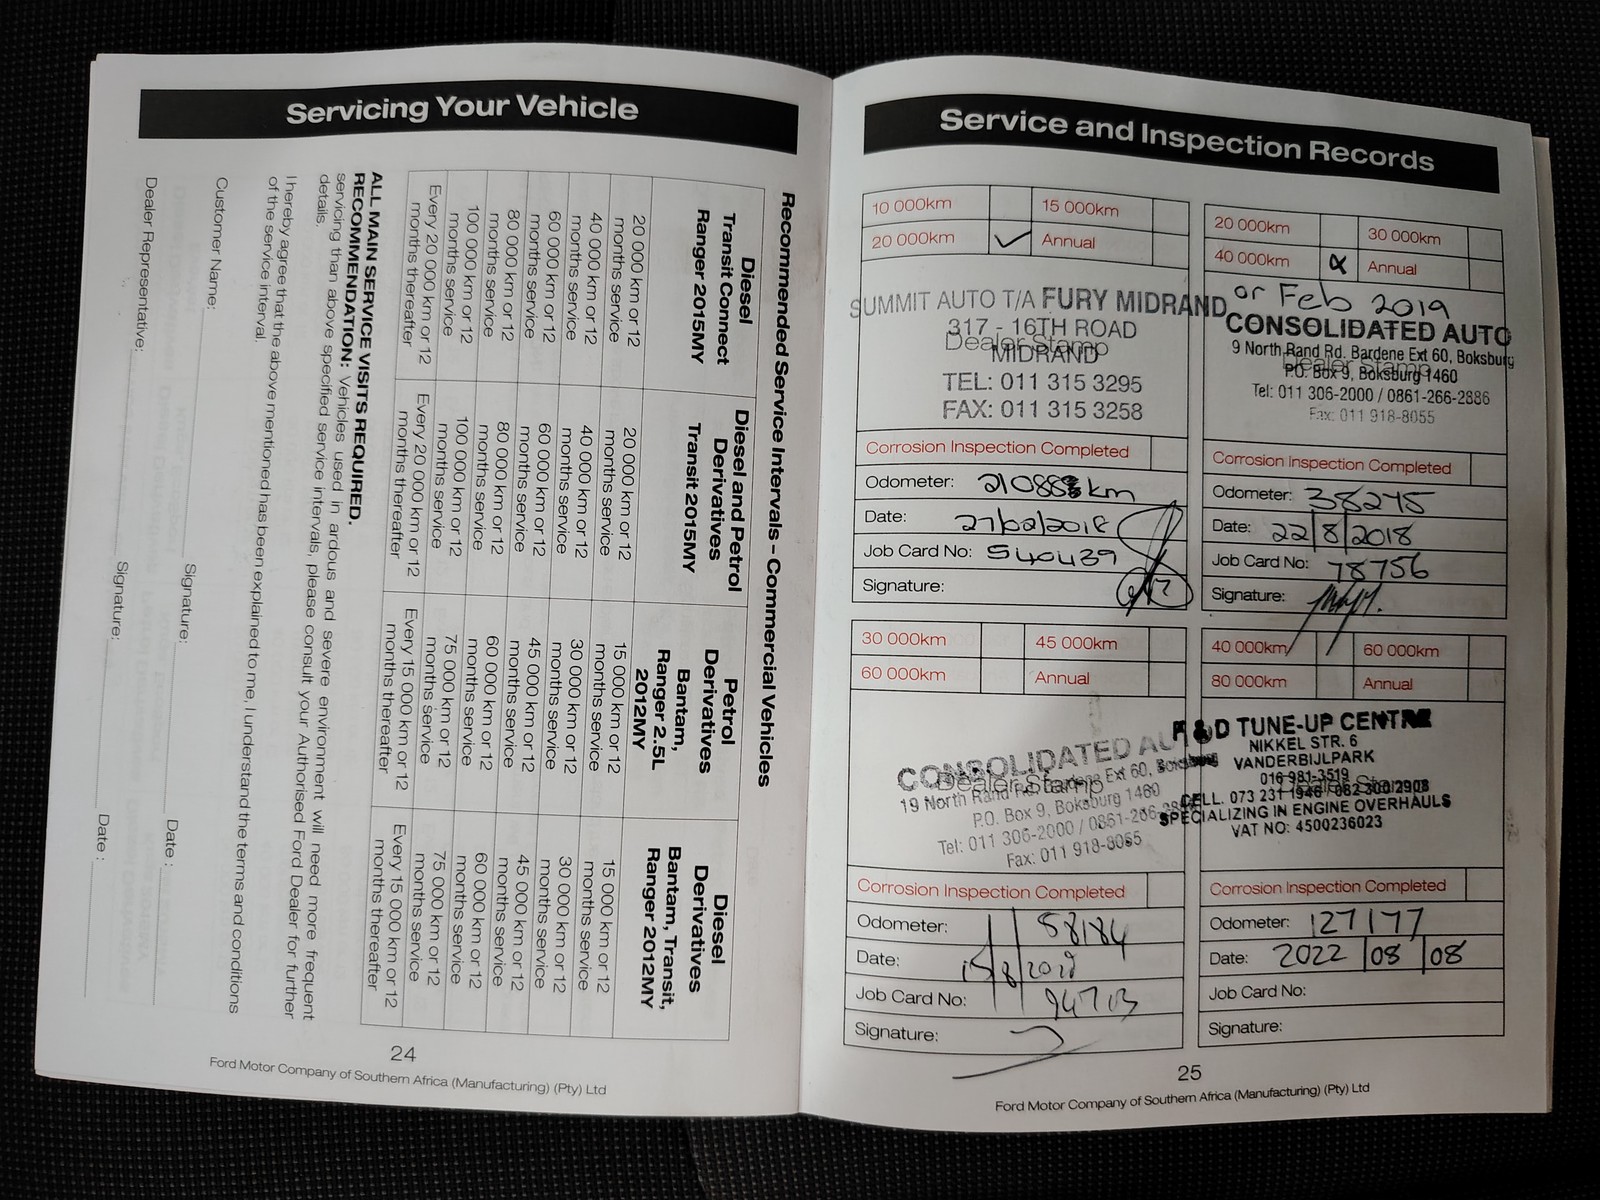 Servicing Your Vehicle
Recommended Service Intervals - Commercial Vehicles
Diesel
Transit Connect
Ranger 2015MY
20 000 km or 12
months service
40 000 km or 12
months service
60 000 km or 12
months service
80 000 km or 12
months service
100 000 km or 12
months service
Every 20 000 km or 12
months thereafter
Diesel and Petrol
Derivatives
Transit 2015MY
20 000 km or 12
months service
40 000 km or 12
months service
60 000 km or 12
months service
80 000 km or 12
months service
100 000 km or 12
months service
Every 20 000 km or 12
months thereafter
Petrol
Derivatives
Bantam,
Ranger 2.5L
2012MY
15 000 km or 12
months service
30 000 km or 12
months service
45 000 km or 12
months service
60 000 km or 12
months service
75 000 km or 12
months service
Every 15 000 km or 12
months thereafter
Diesel
Derivatives
Bantam, Transit,
Ranger 2012MY
15 000 km or 12
months service
30 000 km or 12
months service
45 000 km or 12
months service
60 000 km or 12
months service
75 000 km or 12
months service
Every 15 000 km or 12
months thereafter
ALL MAIN SERVICE VISITS REQUIRED.
RECOMMENDATION: Vehicles used in ardous and severe environment will need more frequent
servicing than above specified service intervals, please consult your Authorised Ford Dealer for further
details.
I hereby agree that the above mentioned has been explained to me, I understand the terms and conditions
of the service interval.
Customer Name: Signature: Date :
Dealer Representative: Signature: Date :
24
Ford Motor Company of Southern Africa (Manufacturing) (Pty) Ltd
Service and Inspection Records
10 000km 15 000km
20 000km ✓ Annual
SUMMIT AUTO T/A FURY MIDRAND
317 - 16TH ROAD
Dealer Stamp
MIDRAND
TEL: 011 315 3295
FAX: 011 315 3258
Corrosion Inspection Completed
Odometer: km
Date: 27/02/2018
Job Card No: 540439
Signature:
20 000km 30 000km
40 000km Annual
or Feb 2019
CONSOLIDATED AUTO
9 North Rand Rd. Bardene Ext 60, Boksburg
Dealer Stamp
P.O. Box 9, Boksburg 1460
Tel: 011 306-2000 / 0861-266-2886
Fax: 011 918-8055
Corrosion Inspection Completed
Odometer: 38275
Date: 22/8/2018
Job Card No: 78756
Signature:
30 000km 45 000km
60 000km Annual
CONSOLIDATED AUTO
Dealer Stamp
19 North Rand Rd. Bardene Ext 60, Boksburg
P.O. Box 9, Boksburg 1460
Tel: 011 306-2000 / 0861-266-
Fax: 011 918-8055
Corrosion Inspection Completed
Odometer: 58184
Date:
Job Card No:
Signature:
40 000km 60 000km
80 000km Annual
& D TUNE-UP CENTRE
NIKKEL STR. 6
VANDERBIJLPARK
016 981-3519
Dealer Stamp
CELL. 073 231 1946 / 082 300 2908
SPECIALIZING IN ENGINE OVERHAULS
VAT NO: 4500236023
Corrosion Inspection Completed
Odometer: 127177
Date: 2022/08/08
Job Card No:
Signature:
25
Ford Motor Company of Southern Africa (Manufacturing) (Pty) Ltd